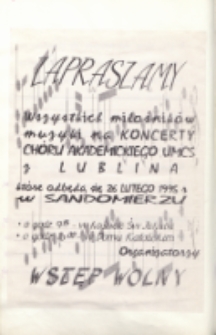 ZAPRASZAMY
Wszystkich miłośników
muzyki na KONCERTY
CHÓRU AKADEMICKIEGO UMCS
z LUBLINA
które odbędą się 26 LUTEGO 1995 r
w SANDOMIERZU
o godz.
o godz. w Domu Katolickim
Organizatorzy
WSTĘP WOLNY